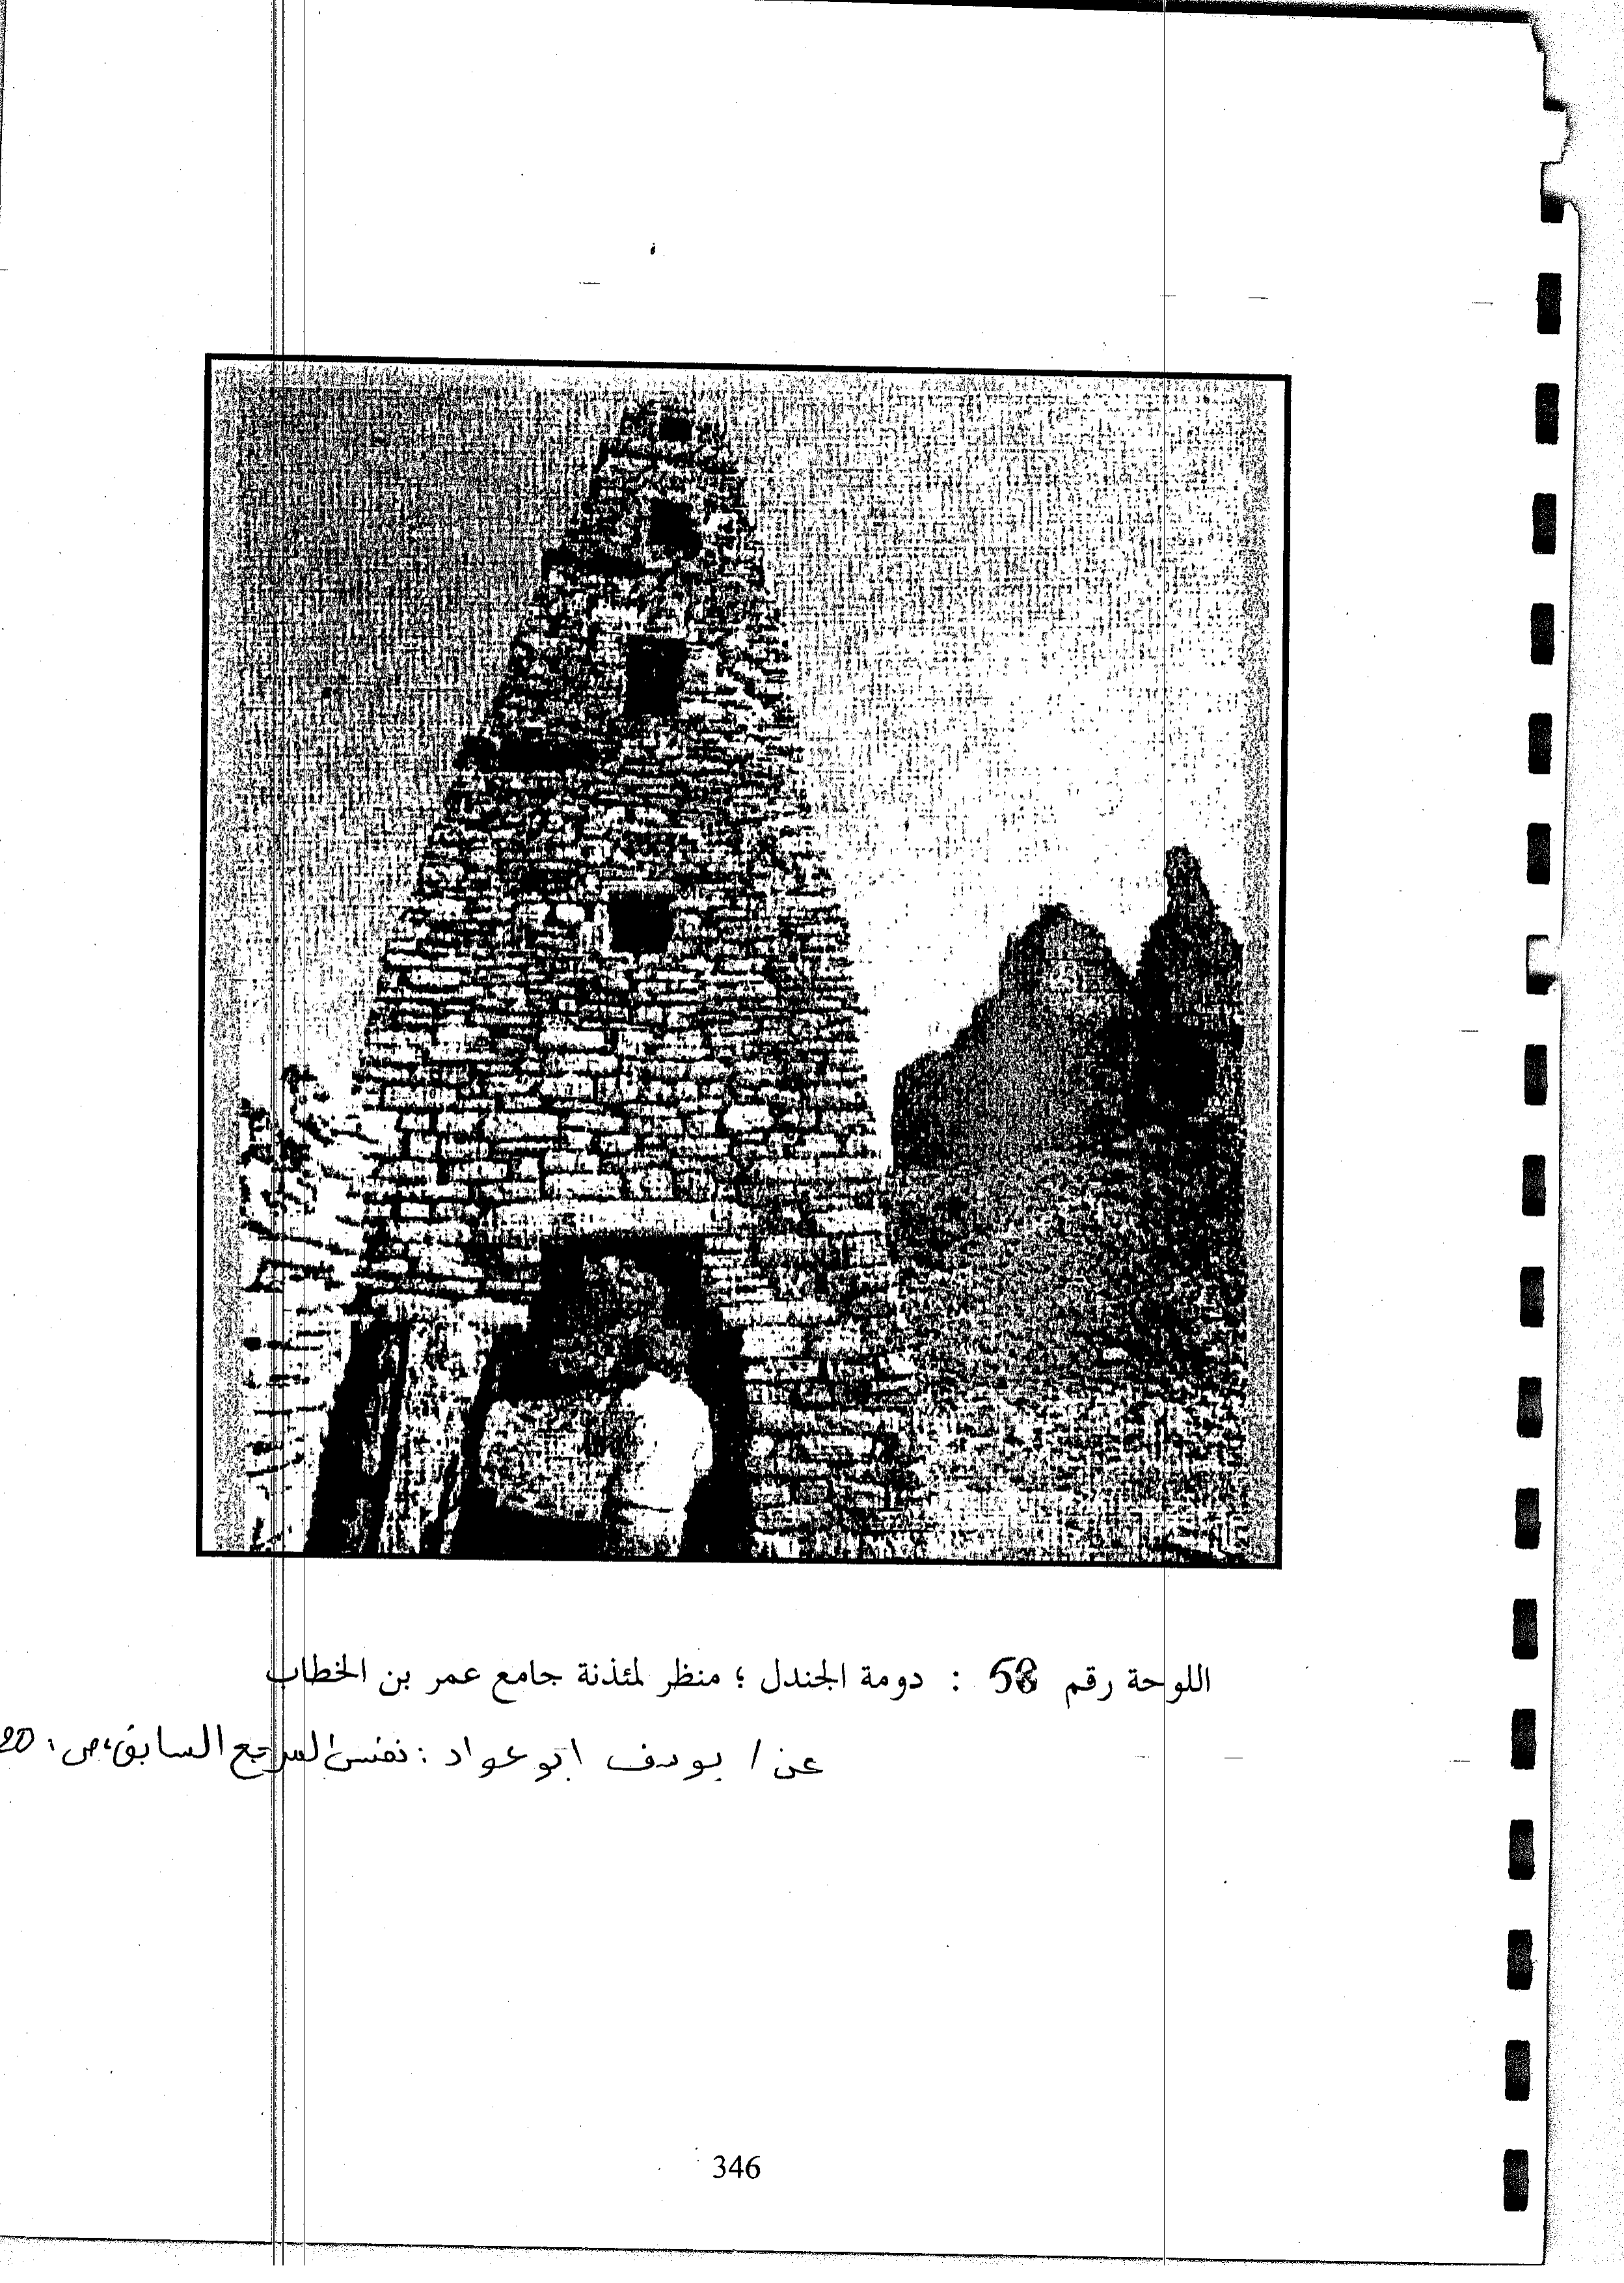 اللوحة رقم 58 : دومة الجندل ؛ منظر لمئذنة جامع عمر بن الخطاب
عن / يوسف ابو عواد : نفس المرجع السابق، ص:
346